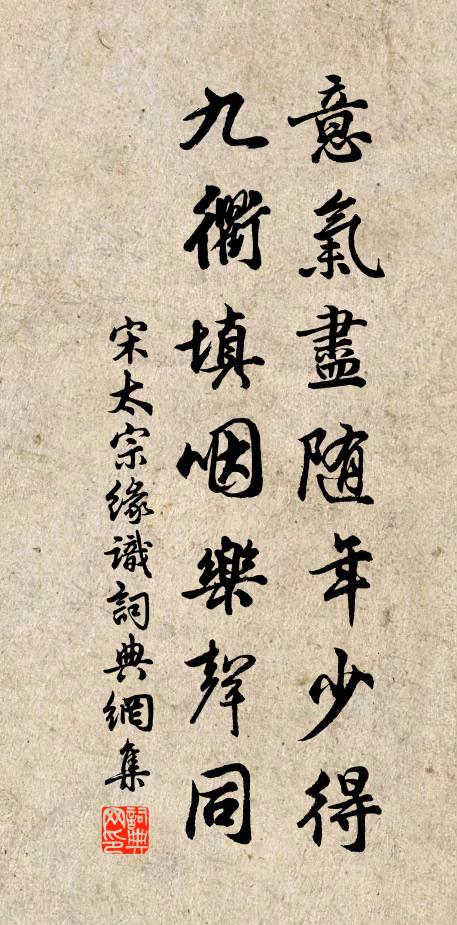 意氣盡随年少得
九衢填咽樂聲同
宋太宗緣識詞典網集
詞典网印